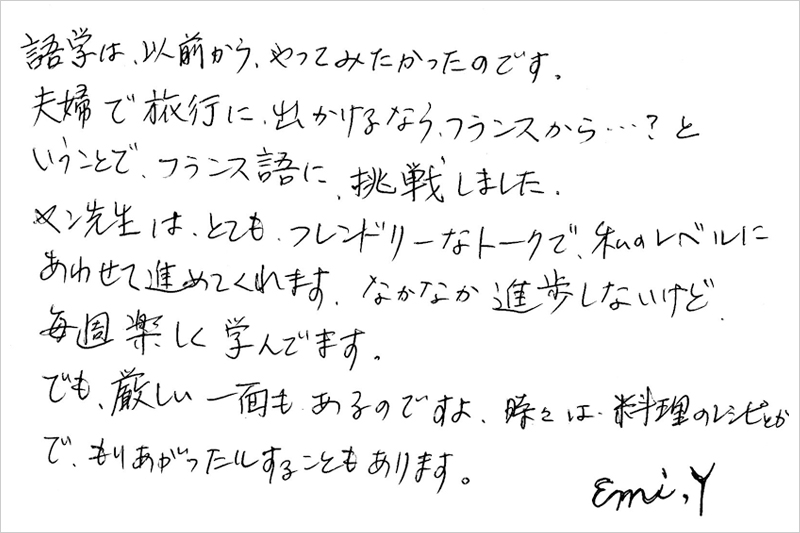 語学は、以前から、やってみたかったのです。
夫婦で旅行に、出かけるなら、フランスから…?と
いうことで、フランス語に、挑戦しました。
ヤン先生は、とても、フレンドリーなトークで、私のレベルに
あわせて進めてくれます。なかなか進歩しないけど、
毎週楽しく学んでます。
でも、厳しい一面もあるのですよ、時々は、料理のレシピとか
で、もりあがったりすることもあります。
Emi,Y